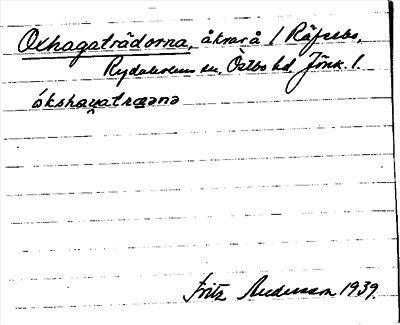 Oxhagaträdorna, åkrar å 1 Räfsebo,
Rydaholms sn. Östbo hd. Jönk. l.
ókshaɡatrææ̨nə
Fritz Andersson 1939.